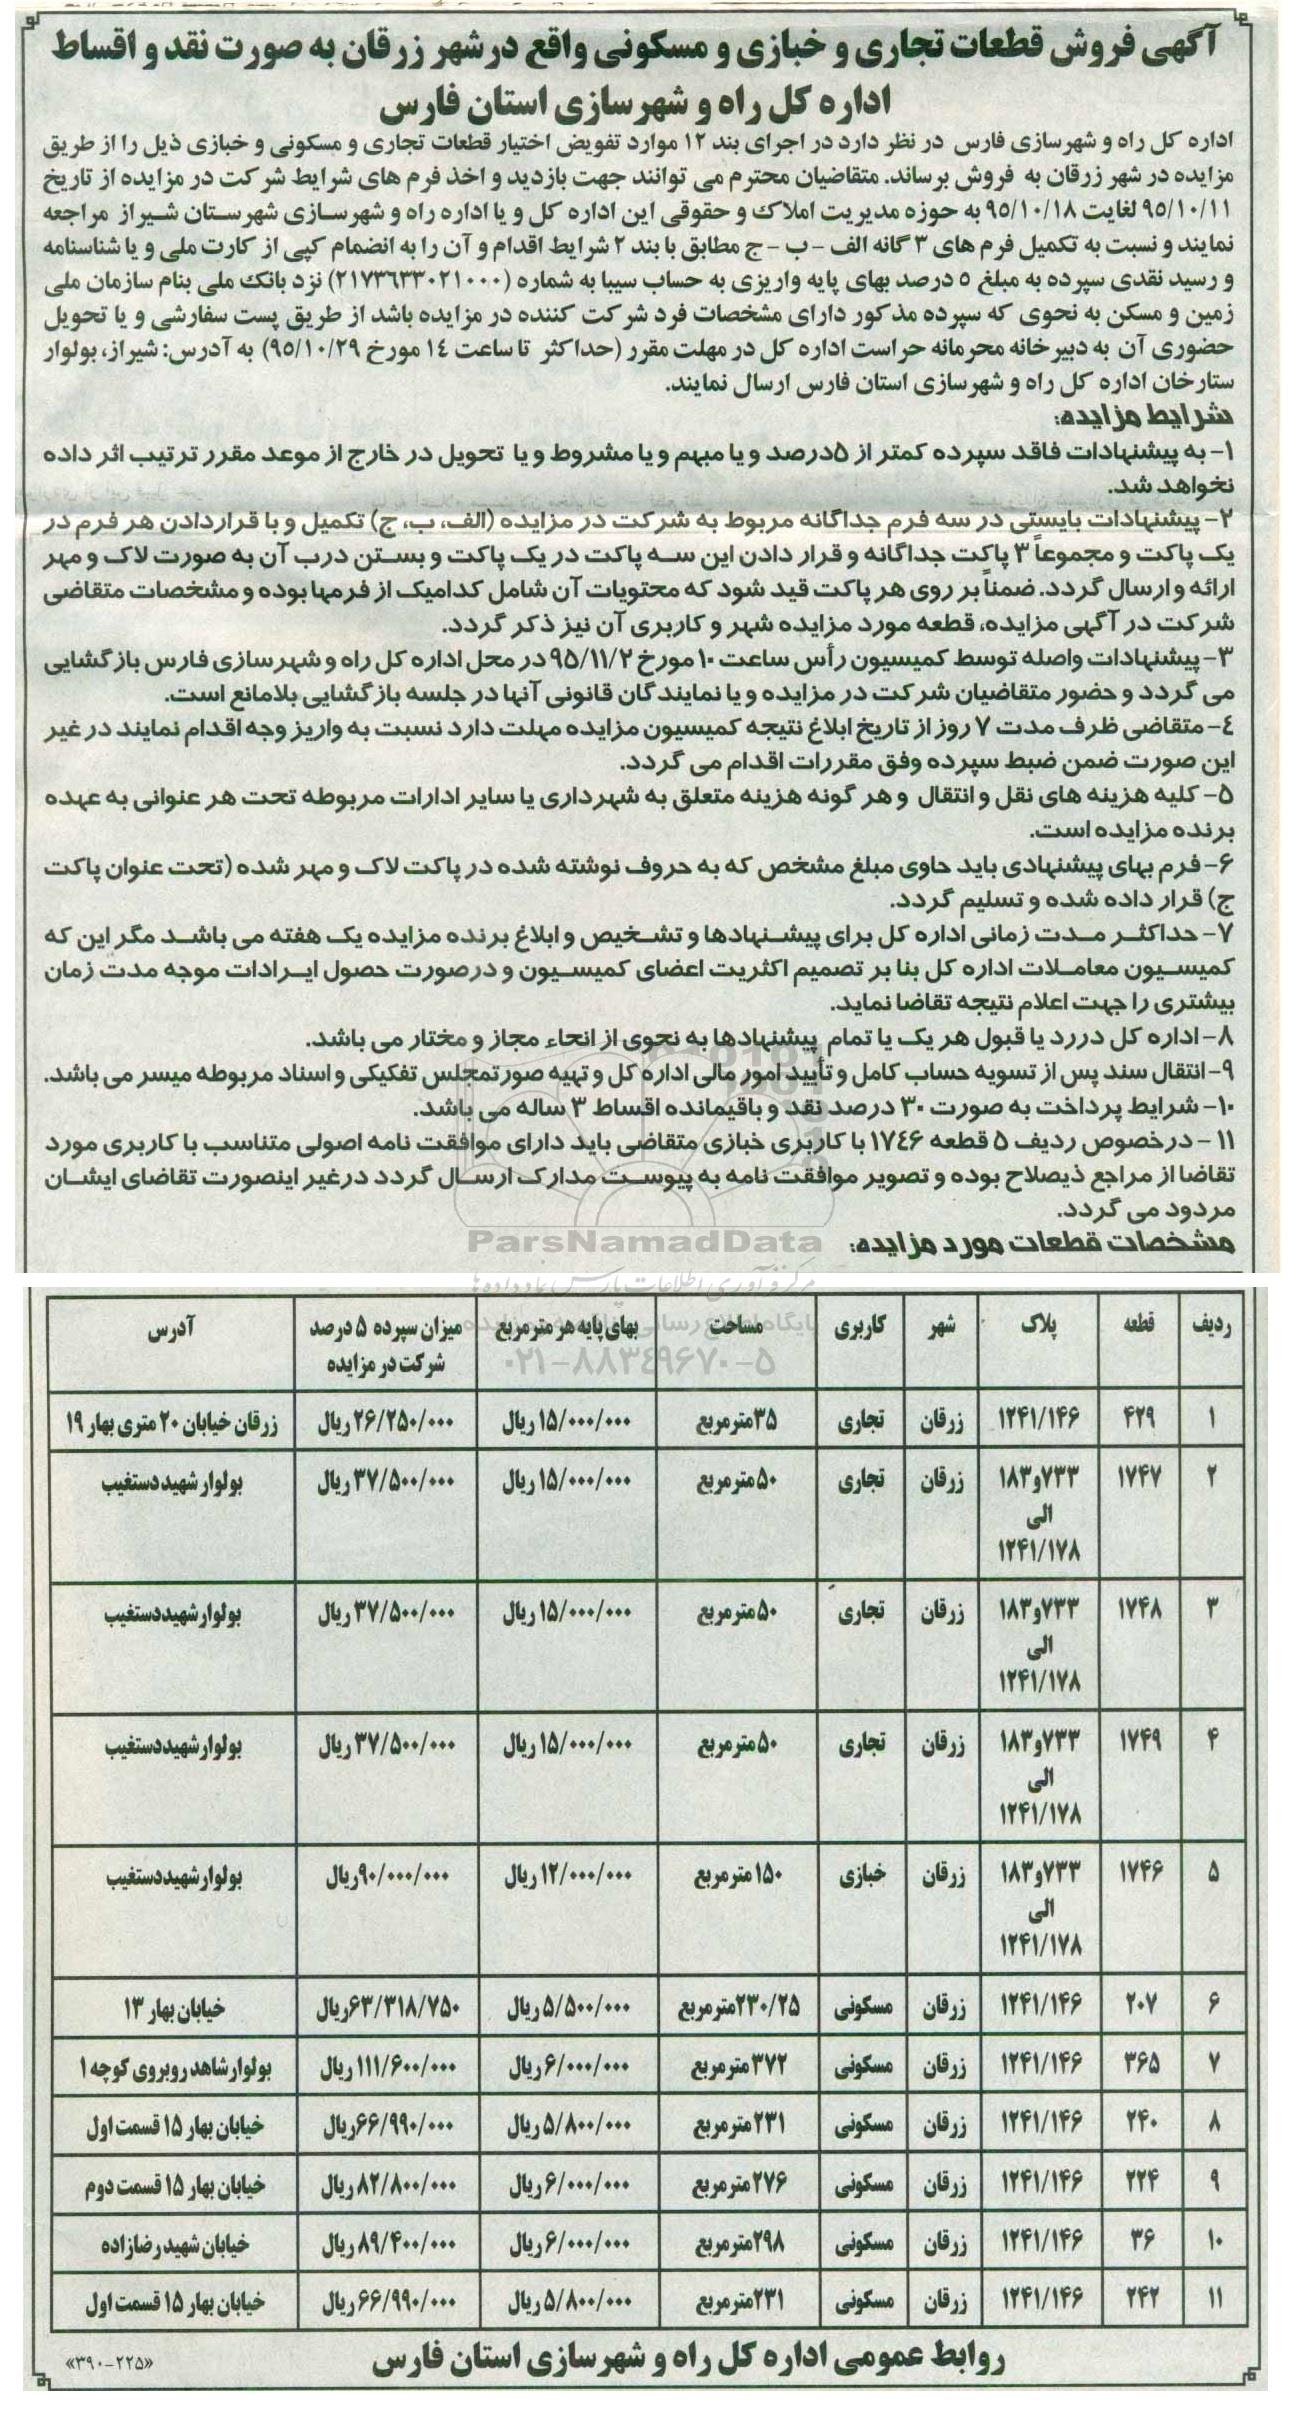 آگهی فروش قطعات تجاری و خبازی و مسکونی واقع درشهر زرقان به صورت نقد و اقساط
اداره کل راه و شهرسازی استان فارس
اداره کل راه و شهرسازی فارس در نظر دارد در اجرای بند ۱۲ موارد تفویض اختیار قطعات تجاری و مسکونی و خبازی ذیل را از طریق
مزایده در شهر زرقان به فروش برساند. متقاضیان محترم می توانند جهت بازدید و اخذ فرم های شرایط شرکت در مزایده از تاریخ
۹۵/۱۰/۱۱ لغایت ۹۵/۱۰/۱۸ به حوزه مدیریت املاک و حقوقی این اداره کل و یا اداره راه و شهرسازی شهرستان شیراز مراجعه
نمایند و نسبت به تکمیل فرم های ۳ گانه الف – ب – ج مطابق با بند ۲ شرایط اقدام و آن را به انضمام کپی از کارت ملی و یا شناسنامه
و رسید نقدی سپرده به مبلغ ۵ درصد بهای پایه واریزی به حساب سیبا به شماره (۲۱۷۳۶۳۳۰۲۱۰۰۰) نزد بانک ملی بنام سازمان ملی
زمین و مسکن به نحوی که سپرده مذکور دارای مشخصات فرد شرکت کننده در مزایده باشد از طریق پست سفارشی و یا تحویل
حضوری آن به دبیرخانه محرمانه حراست اداره کل در مهلت مقرر (حداکثر تا ساعت ۱۴ مورخ ۹۵/۱۰/۲۹) به آدرس: شیراز، بولوار
ستارخان اداره کل راه و شهرسازی استان فارس ارسال نمایند.
شرایط مزایده:
۱- به پیشنهادات فاقد سپرده کمتر از ۵درصد و یا مبهم و یا مشروط و یا تحویل در خارج از موعد مقرر ترتیب اثر داده
نخواهد شد.
۲- پیشنهادات بایستی در سه فرم جداگانه مربوط به شرکت در مزایده (الف، ب، ج) تکمیل و با قراردادن هر فرم در
یک پاکت و مجموعاً ۳ پاکت جداگانه و قرار دادن این سه پاکت در یک پاکت و بستن درب آن به صورت لاک و مهر
ارائه و ارسال گردد. ضمناً بر روی هر پاکت قید شود که محتویات آن شامل کدامیک از فرمها بوده و مشخصات متقاضی
شرکت در آگهی مزایده، قطعه مورد مزایده شهر و کاربری آن نیز ذکر گردد.
۳- پیشنهادات واصله توسط کمیسیون رأس ساعت ۱۰ مورخ ۹۵/۱۱/۲ در محل اداره کل راه و شهرسازی فارس بازگشایی
می گردد و حضور متقاضیان شرکت در مزایده و یا نمایندگان قانونی آنها در جلسه بازگشایی بلامانع است.
۴- متقاضی ظرف مدت ۷ روز از تاریخ ابلاغ نتیجه کمیسیون مزایده مهلت دارد نسبت به واریز وجه اقدام نمایند در غیر
این صورت ضمن ضبط سپرده وفق مقررات اقدام می گردد.
۵- کلیه هزینه های نقل و انتقال و هر گونه هزینه متعلق به شهرداری یا سایر ادارات مربوطه تحت هر عنوانی به عهده
برنده مزایده است.
۶- فرم بهای پیشنهادی باید حاوی مبلغ مشخص که به حروف نوشته شده در پاکت لاک و مهر شده (تحت عنوان پاکت
ج) قرار داده شده و تسلیم گردد.
۷- حداکثر مدت زمانی اداره کل برای پیشنهادها و تشخیص و ابلاغ برنده مزایده یک هفته می باشد مگر این که
کمیسیون معاملات اداره کل بنا بر تصمیم اکثریت اعضای کمیسیون و درصورت حصول ایرادات موجه مدت زمان
بیشتری را جهت اعلام نتیجه تقاضا نماید.
۸- اداره کل دررد یا قبول هر یک یا تمام پیشنهادها به نحوی از انحاء مجاز و مختار می باشد.
۹- انتقال سند پس از تسویه حساب کامل و تأیید امور مالی اداره کل و تهیه صورتمجلس تفکیکی و اسناد مربوطه میسر می باشد.
۱۰- شرایط پرداخت به صورت ۳۰ درصد نقد و باقیمانده اقساط ۳ ساله می باشد.
۱۱ - درخصوص ردیف ۵ قطعه ۱۷۴۶ با کاربری خبازی متقاضی باید دارای موافقت نامه اصولی متناسب با کاربری مورد
تقاضا از مراجع ذیصلاح بوده و تصویر موافقت نامه به پیوست مدارک ارسال گردد درغیر اینصورت تقاضای ایشان
مردود می گردد.
ParsNamadData
مشخصات قطعات مورد مزایده:
مرکز فرآوری اطلاعات پارس نماد داده ها
۰۲۱-۸۸۳۴۹۶۷۰-۵
ردیف قطعه پلاک شهر کاربری مساحت بهای پایه هر مترمربع میزان سپرده ۵ درصد شرکت در مزایده آدرس
۱ ۴۲۹ ۱۲۴۱/۱۴۶ زرقان تجاری ۳۵مترمربع ۱۵/۰۰۰/۰۰۰ ریال ۲۶/۲۵۰/۰۰۰ ریال زرقان خیابان ۲۰ متری بهار ۱۹
۲ ۱۷۴۷ ۷۳۳و۱۸۳ الی ۱۲۴۱/۱۷۸ زرقان تجاری ۵۰ مترمربع ۱۵/۰۰۰/۰۰۰ ریال ۳۷/۵۰۰/۰۰۰ ریال بولوار شهید دستغیب
۳ ۱۷۴۸ ۷۳۳و۱۸۳ الی ۱۲۴۱/۱۷۸ زرقان تجاری ۵۰ مترمربع ۱۵/۰۰۰/۰۰۰ ریال ۳۷/۵۰۰/۰۰۰ ریال بولوار شهید دستغیب
۴ ۱۷۴۹ ۷۳۳و۱۸۳ الی ۱۲۴۱/۱۷۸ زرقان تجاری ۵۰ مترمربع ۱۵/۰۰۰/۰۰۰ ریال ۳۷/۵۰۰/۰۰۰ ریال بولوار شهید دستغیب
۵ ۱۷۴۶ ۷۳۳و۱۸۳ الی ۱۲۴۱/۱۷۸ زرقان خبازی ۱۵۰ مترمربع ۱۲/۰۰۰/۰۰۰ ریال ۹۰/۰۰۰/۰۰۰ریال بولوار شهید دستغیب
۶ ۲۰۷ ۱۲۴۱/۱۴۶ زرقان مسکونی ۲۳۰/۲۵مترمربع ۵/۵۰۰/۰۰۰ ریال ۶۳/۳۱۸/۷۵۰ریال خیابان بهار ۱۳
۷ ۳۶۵ ۱۲۴۱/۱۴۶ زرقان مسکونی ۳۷۲ مترمربع ۶/۰۰۰/۰۰۰ ریال ۱۱۱/۶۰۰/۰۰۰ ریال بولوار شاهد روبروی کوچه ۱
۸ ۲۴۰ ۱۲۴۱/۱۴۶ زرقان مسکونی ۲۳۱ مترمربع ۵/۸۰۰/۰۰۰ ریال ۶۶/۹۹۰/۰۰۰ریال خیابان بهار ۱۵ قسمت اول
۹ ۲۲۴ ۱۲۴۱/۱۴۶ زرقان مسکونی ۲۷۶ مترمربع ۶/۰۰۰/۰۰۰ ریال ۸۲/۸۰۰/۰۰۰ ریال خیابان بهار ۱۵ قسمت دوم
۱۰ ۳۶ ۱۲۴۱/۱۴۶ زرقان مسکونی ۲۹۸مترمربع ۶/۰۰۰/۰۰۰ ریال ۸۹/۴۰۰/۰۰۰ ریال خیابان شهید رضازاده
۱۱ ۲۴۲ ۱۲۴۱/۱۴۶ زرقان مسکونی ۲۳۱مترمربع ۵/۸۰۰/۰۰۰ ریال ۶۶/۹۹۰/۰۰۰ ریال خیابان بهار ۱۵ قسمت اول
روابط عمومی اداره کل راه و شهرسازی استان فارس
«۳۹۰-۲۲۵»